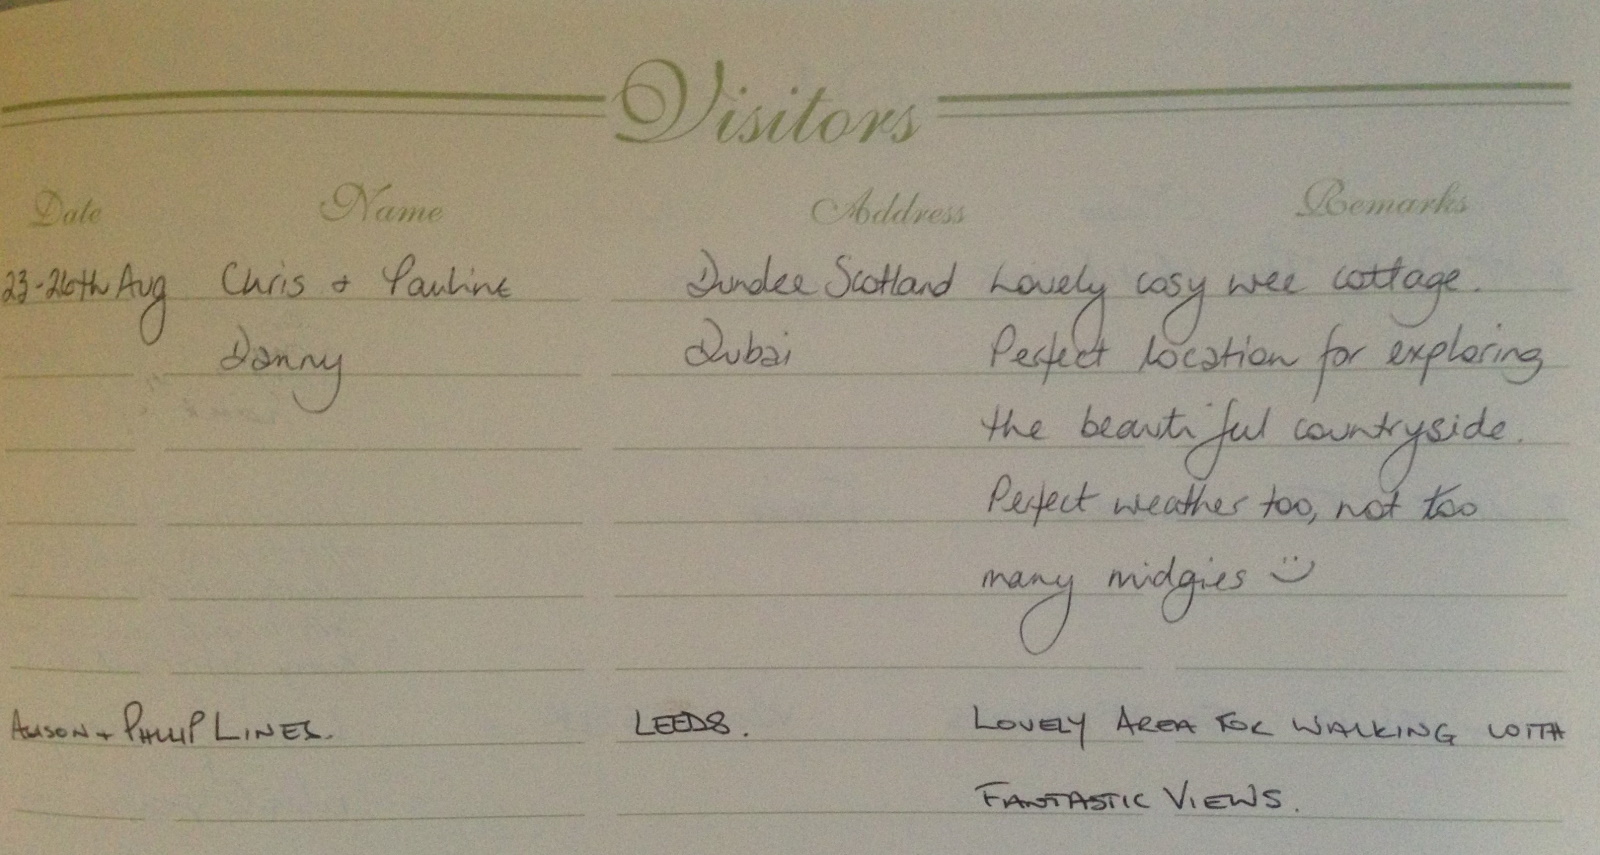 Visitors
Date Name Address Remarks
23-26th Aug Chris + Pauline Dundee Scotland Lovely cosy wee cottage.
Danny Dubai Perfect location for exploring
the beautiful countryside.
Perfect weather too, not too
many midgies :)
ALISON + PHILIP LINES. LEEDS. LOVELY AREA FOR WALKING WITH
FANTASTIC VIEWS.